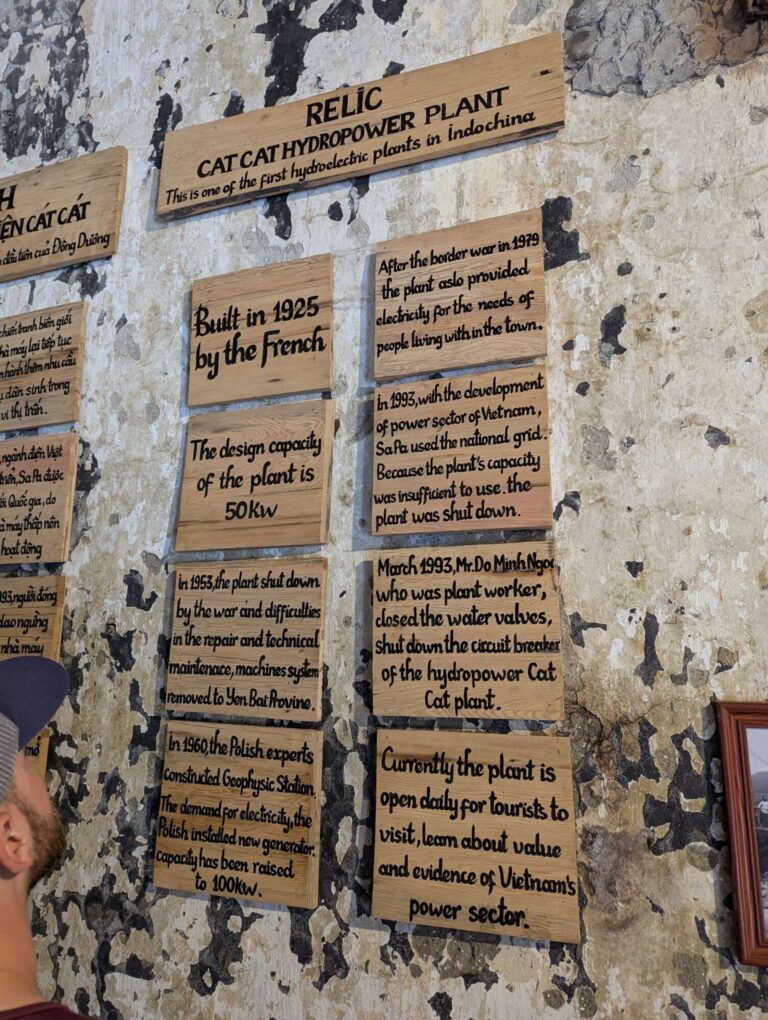 RELIC
CAT CAT HYDROPOWER PLANT
This is one of the first hydroelectric plants in indochina
Built in 1925
by the French
The design capacity
of the plant is
50KW
in 1953, the plant shut down
by the war and difficulties
in the repair and technical
maintenace, machines system
removed to Yen Bai Provine.
in 1960, the Polish experts
constructed Geophysic Station.
The demand for electricity, the
Polish installed new generator.
capacity has been raised
to 100KW.
After the border war in 1979
the plant aslo provided
electricity for the needs of
people living with in the town.
in 1993, with the development
of power sector of Vietnam,
Sa Pa used the national grid.
Because the plant's capacity
was insufficient to use. the
plant was shut down.
March 1993, Mr. Do Minh Ngoc
who was plant worker,
closed the water valves,
shut down the circuit breaker
of the hydropower Cat
Cat plant.
Currently the plant is
open daily for tourists to
visit, learn about value
and evidence of Vietnam's
power sector.
H
ỆN CÁT CÁT
đầu tiên của Đông Dương
chiến tranh biên giới
hà máy lại tiếp tục
n hành thêm nhu cầu
dân sinh trong
vi thị trấn.
ngành điện Việt
Sa Pa được
Quốc gia, do
à máy thấp nên
hoạt động
93, người đóng
dao ngừng
nhà máy